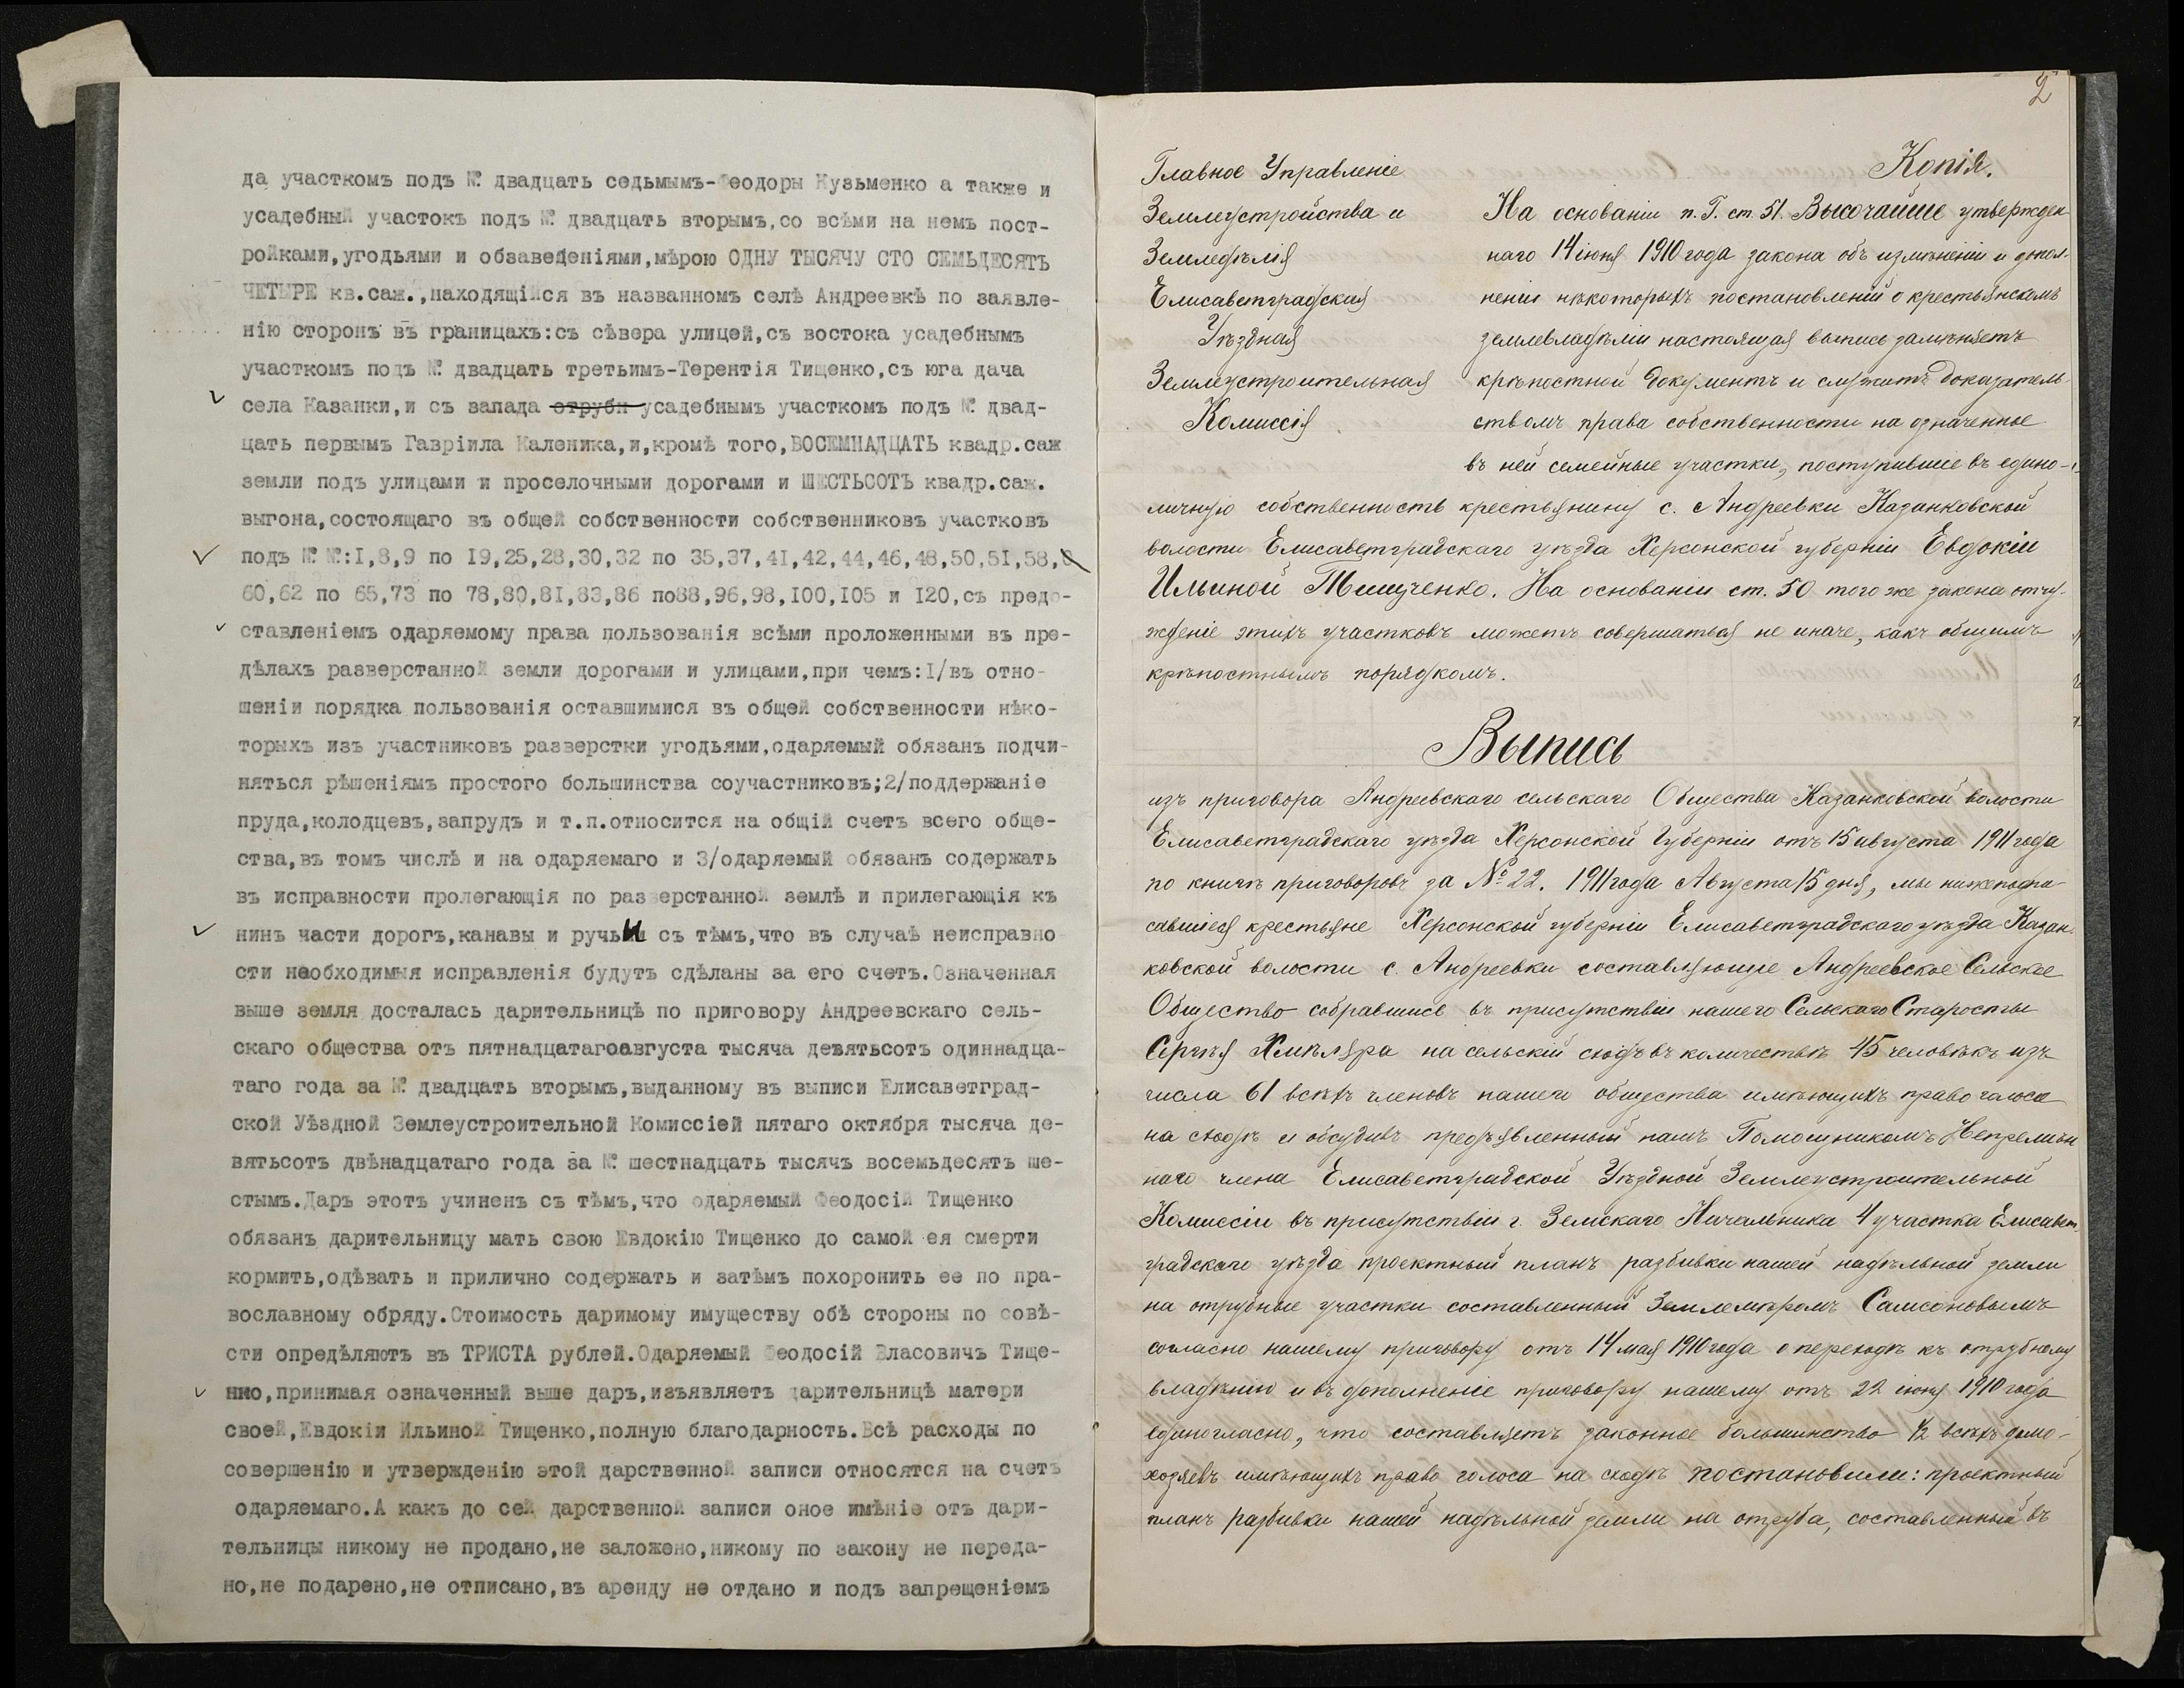 да участкомъ подъ №. двадцать седьмымъ-Феодоры Кузьменко а также и
усадебный участокъ подъ №. двадцать вторымъ,со всѣми на немъ пост-
ройками,угодьями и обзаведеніями,мѣрою ОДНУ ТЫСЯЧУ СТО СЕМЬДЕСЯТЪ
ЧЕТЫРЕ кв.саж.,находящійся въ названномъ селѣ Андреевкѣ по заявле-
нію сторонъ въ границахъ:съ сѣвера улицей,съ востока усадебнымъ
участкомъ подъ №. двадцать третьимъ-Терентія Тищенко,съ юга дача
села Казанки,и съ запада отруби усадебнымъ участкомъ подъ №. двад-
цать первымъ Гавріила Каленика,и,кромѣ того,ВОСЕМНАДЦАТЬ квадр.саж
земли подъ улицами и проселочными дорогами и ШЕСТЬСОТЪ квадр.саж.
выгона,состоящаго въ общей собственности собственниковъ участковъ
подъ №.№.:I,8,9 по I9,25,28,30,32 по 35,37,4I,42,44,46,48,50,5I,58,
60,62 по 65,73 по 78,80,8I,83,86 по88,96,98,I00,I05 и I20,съ предо-
ставленіемъ одаряемому права пользованія всѣми проложенными въ пре-
дѣлахъ разверстанной земли дорогами и улицами,при чемъ:I/въ отно-
шеніи порядка пользованія оставшимися въ общей собственности нѣко-
торыхъ изъ участниковъ разверстки угодьями,одаряемый обязанъ подчи-
няться рѣшеніямъ простого большинства соучастниковъ;2/поддержаніе
пруда,колодцевъ,запрудъ и т.п.относится на общій счетъ всего обще-
ства,въ томъ числѣ и на одаряемаго и 3/одаряемый обязанъ содержать
въ исправности пролегающія по разверстанной землѣ и прилегающія къ
нинъ части дорогъ,канавы и ручьи съ тѣмъ,что въ случаѣ неисправно
сти необходимыя исправленія будутъ сдѣланы за его счетъ.Означенная
выше земля досталась дарительницѣ по приговору Андреевскаго сель-
скаго общества отъ пятнадцатагоавгуста тысяча девятьсотъ одиннадца-
таго года за №. двадцать вторымъ,выданному въ выписи Елисаветград-
ской Уѣздной Землеустроительной Комиссіей пятаго октября тысяча де-
вятьсотъ двѣнадцатаго года за №. шестнадцать тысячъ восемьдесятъ ше-
стымъ.Даръ этотъ учиненъ съ тѣмъ,что одаряемый Феодосій Тищенко
обязанъ дарительницу мать свою Евдокію Тищенко до самой ея смерти
кормить,одѣвать и прилично содержать и затѣмъ похоронить ее по пра-
вославному обряду.Стоимость даримому имуществу обѣ стороны по совѣ-
сти опредѣляютъ въ ТРИСТА рублей.Одаряемый Феодосій Власовичъ Тище-
нко,принимая означенный выше даръ,изъявляетъ дарительницѣ матери
своей,Евдокіи Ильиной Тищенко,полную благодарность.Всѣ расходы по
совершенію и утвержденію этой дарственной записи относятся на счетъ
одаряемаго.А какъ до сей дарственной записи оное имѣніе отъ дари-
тельницы никому не продано,не заложено,никому по закону не переда-
но,не подарено,не отписано,въ аренду не отдано и подъ запрещеніемъ
2
Копія.
Главное Управленіе
Землеустройства и
Земледѣлія
Елисаветградская
Уѣздная
Землеустроительная
Комиссія
На основаніи п. Г. ст. 51. Высочайше утвержден-
наго 14 іюня 1910 года закона объ измѣненіи и допол-
неніи нѣкоторыхъ постановленій о крестьянскомъ
землевладѣніи настоящая выпись замѣняетъ
крѣпостной документъ и служитъ доказатель-
ствомъ права собственности на означенные
въ ней семейные участки, поступившіе въ едино-
личную собственность крестьянину с. Андреевки Казанковской
волости Елисаветградскаго уѣзда Херсонской губерніи Евдокіи
Ильиной Тищенко. На основаніи ст. 50 того же закона отчу-
жденіе этихъ участковъ можетъ совершаться не иначе, какъ общимъ
крѣпостнымъ порядкомъ.
Выпись
изъ приговора Андреевскаго сельскаго Общества Казанковской волости
Елисаветградскаго уѣзда Херсонской Губерніи отъ 15 августа 1911 года
по книгѣ приговоровъ за № 22. 1911 года Августа 15 дня, мы нижеподпи
савшіеся крестьяне Херсонской губерніи Елисаветградскаго уѣзда Казан-
ковской волости с. Андреевки составляющіе Андреевское Сельское
Общество собравшись въ присутствіи нашего Сельскаго Старосты
Сергѣя на сельскій сходъ въ количествѣ 45 человѣкъ изъ
числа 61 всѣхъ членовъ нашего общества имѣющихъ право голоса
на сходѣ и обсудивъ предъявленный намъ Помощникомъ Непремѣн
наго члена Елисаветградской Уѣздной Землеустроительной
Комиссіи въ присутствіи г. Земскаго Начальника 4 участка Елисавет-
градскаго уѣзда проектный планъ разбивки нашей надѣльной земли
на отрубные участки составленный Землемѣромъ Самсоновымъ
согласно нашему приговору отъ 14 мая 1910 года о переходѣ къ отрубному
владѣнію и въ дополненіе приговору нашему отъ 22 іюня 1910 года
единогласно, что составляетъ законное большинство ½ всѣхъ домо-
хозяевъ имѣющихъ право голоса на сходѣ постановили: проектный
планъ разбивки нашей надѣльной земли на отруба, составленный въ